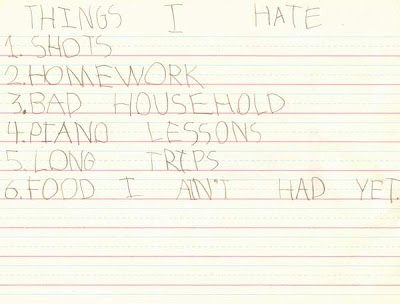 THINGS I HATE
1. SHOTS
2. HOMEWORK
3. BAD HOUSEHOLD
4. PIANO LESSONS
5. LONG TRIPS
6. FOOD I AIN'T HAD YET.